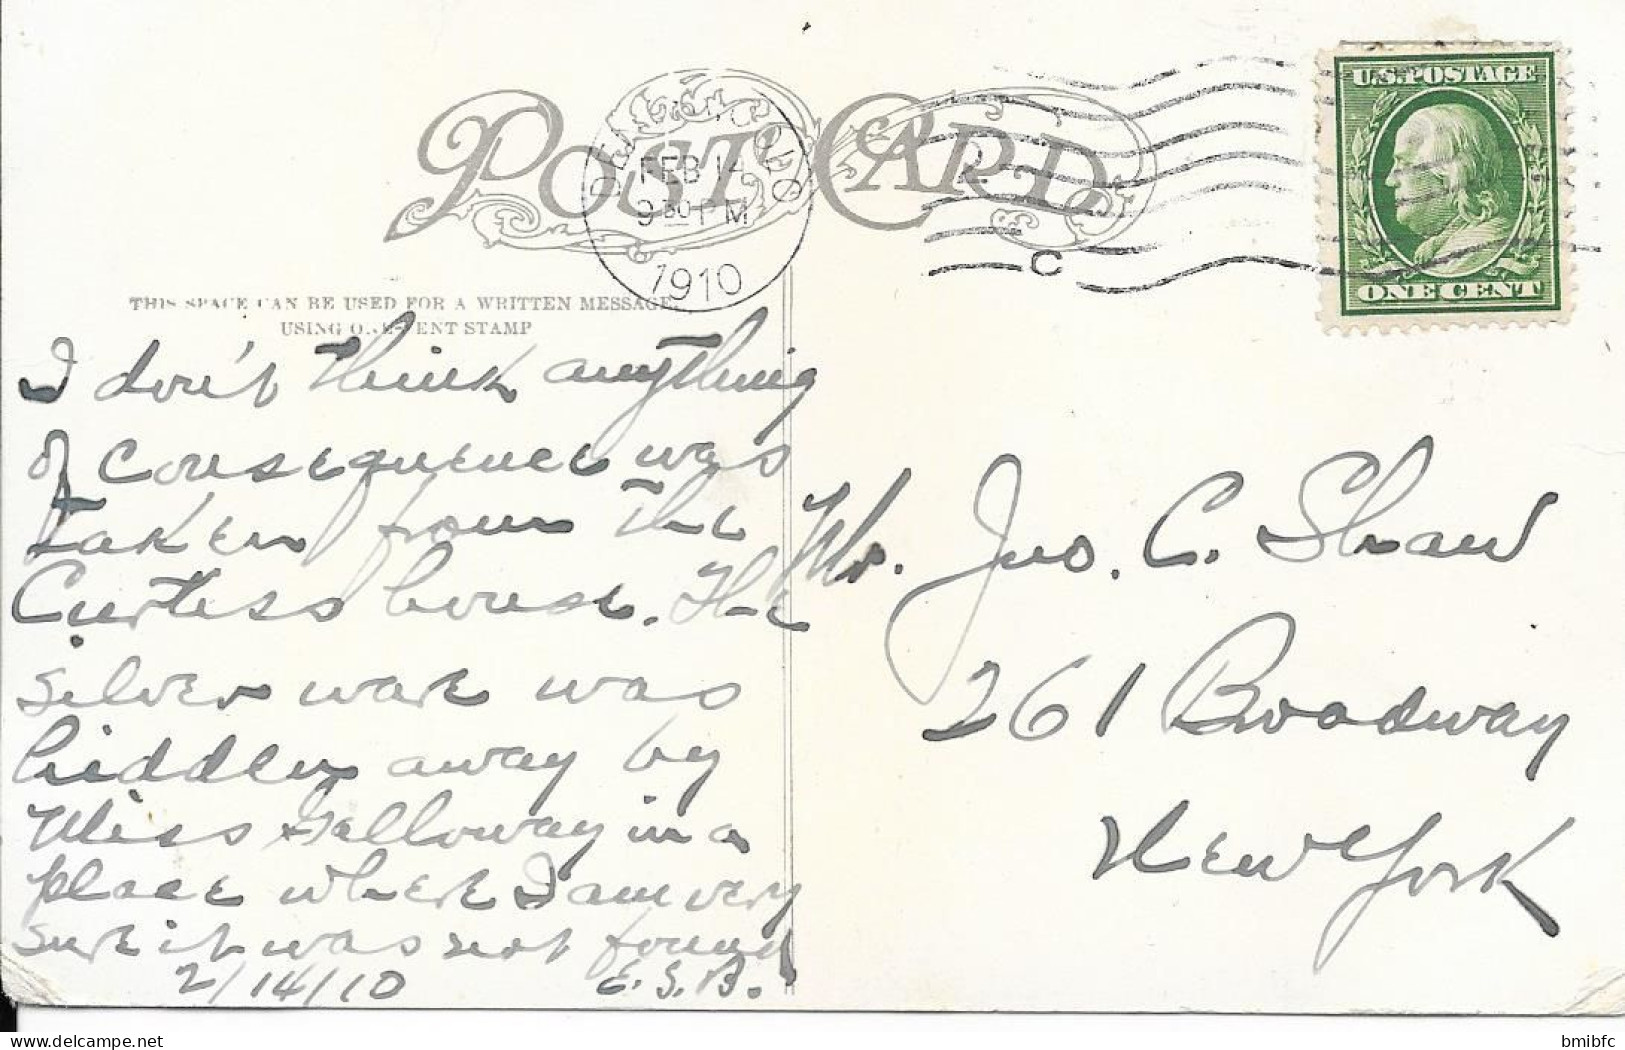 POST CARD
FEB 14
9 30 PM
1910
C
U.S. POSTAGE
ONE CENT
THIS SPACE CAN BE USED FOR A WRITTEN MESSAGE
USING ONE-CENT STAMP
I don't think anything
of consequence was
taken from the
Curtiss house. The
silver ware was
hidden away by
Miss Galloway in a
place where I am very
sure it was not found
2/14/10 E.S.B.
Mr. Jno. C. Shaw
261 Broadway
New York
bmibfc